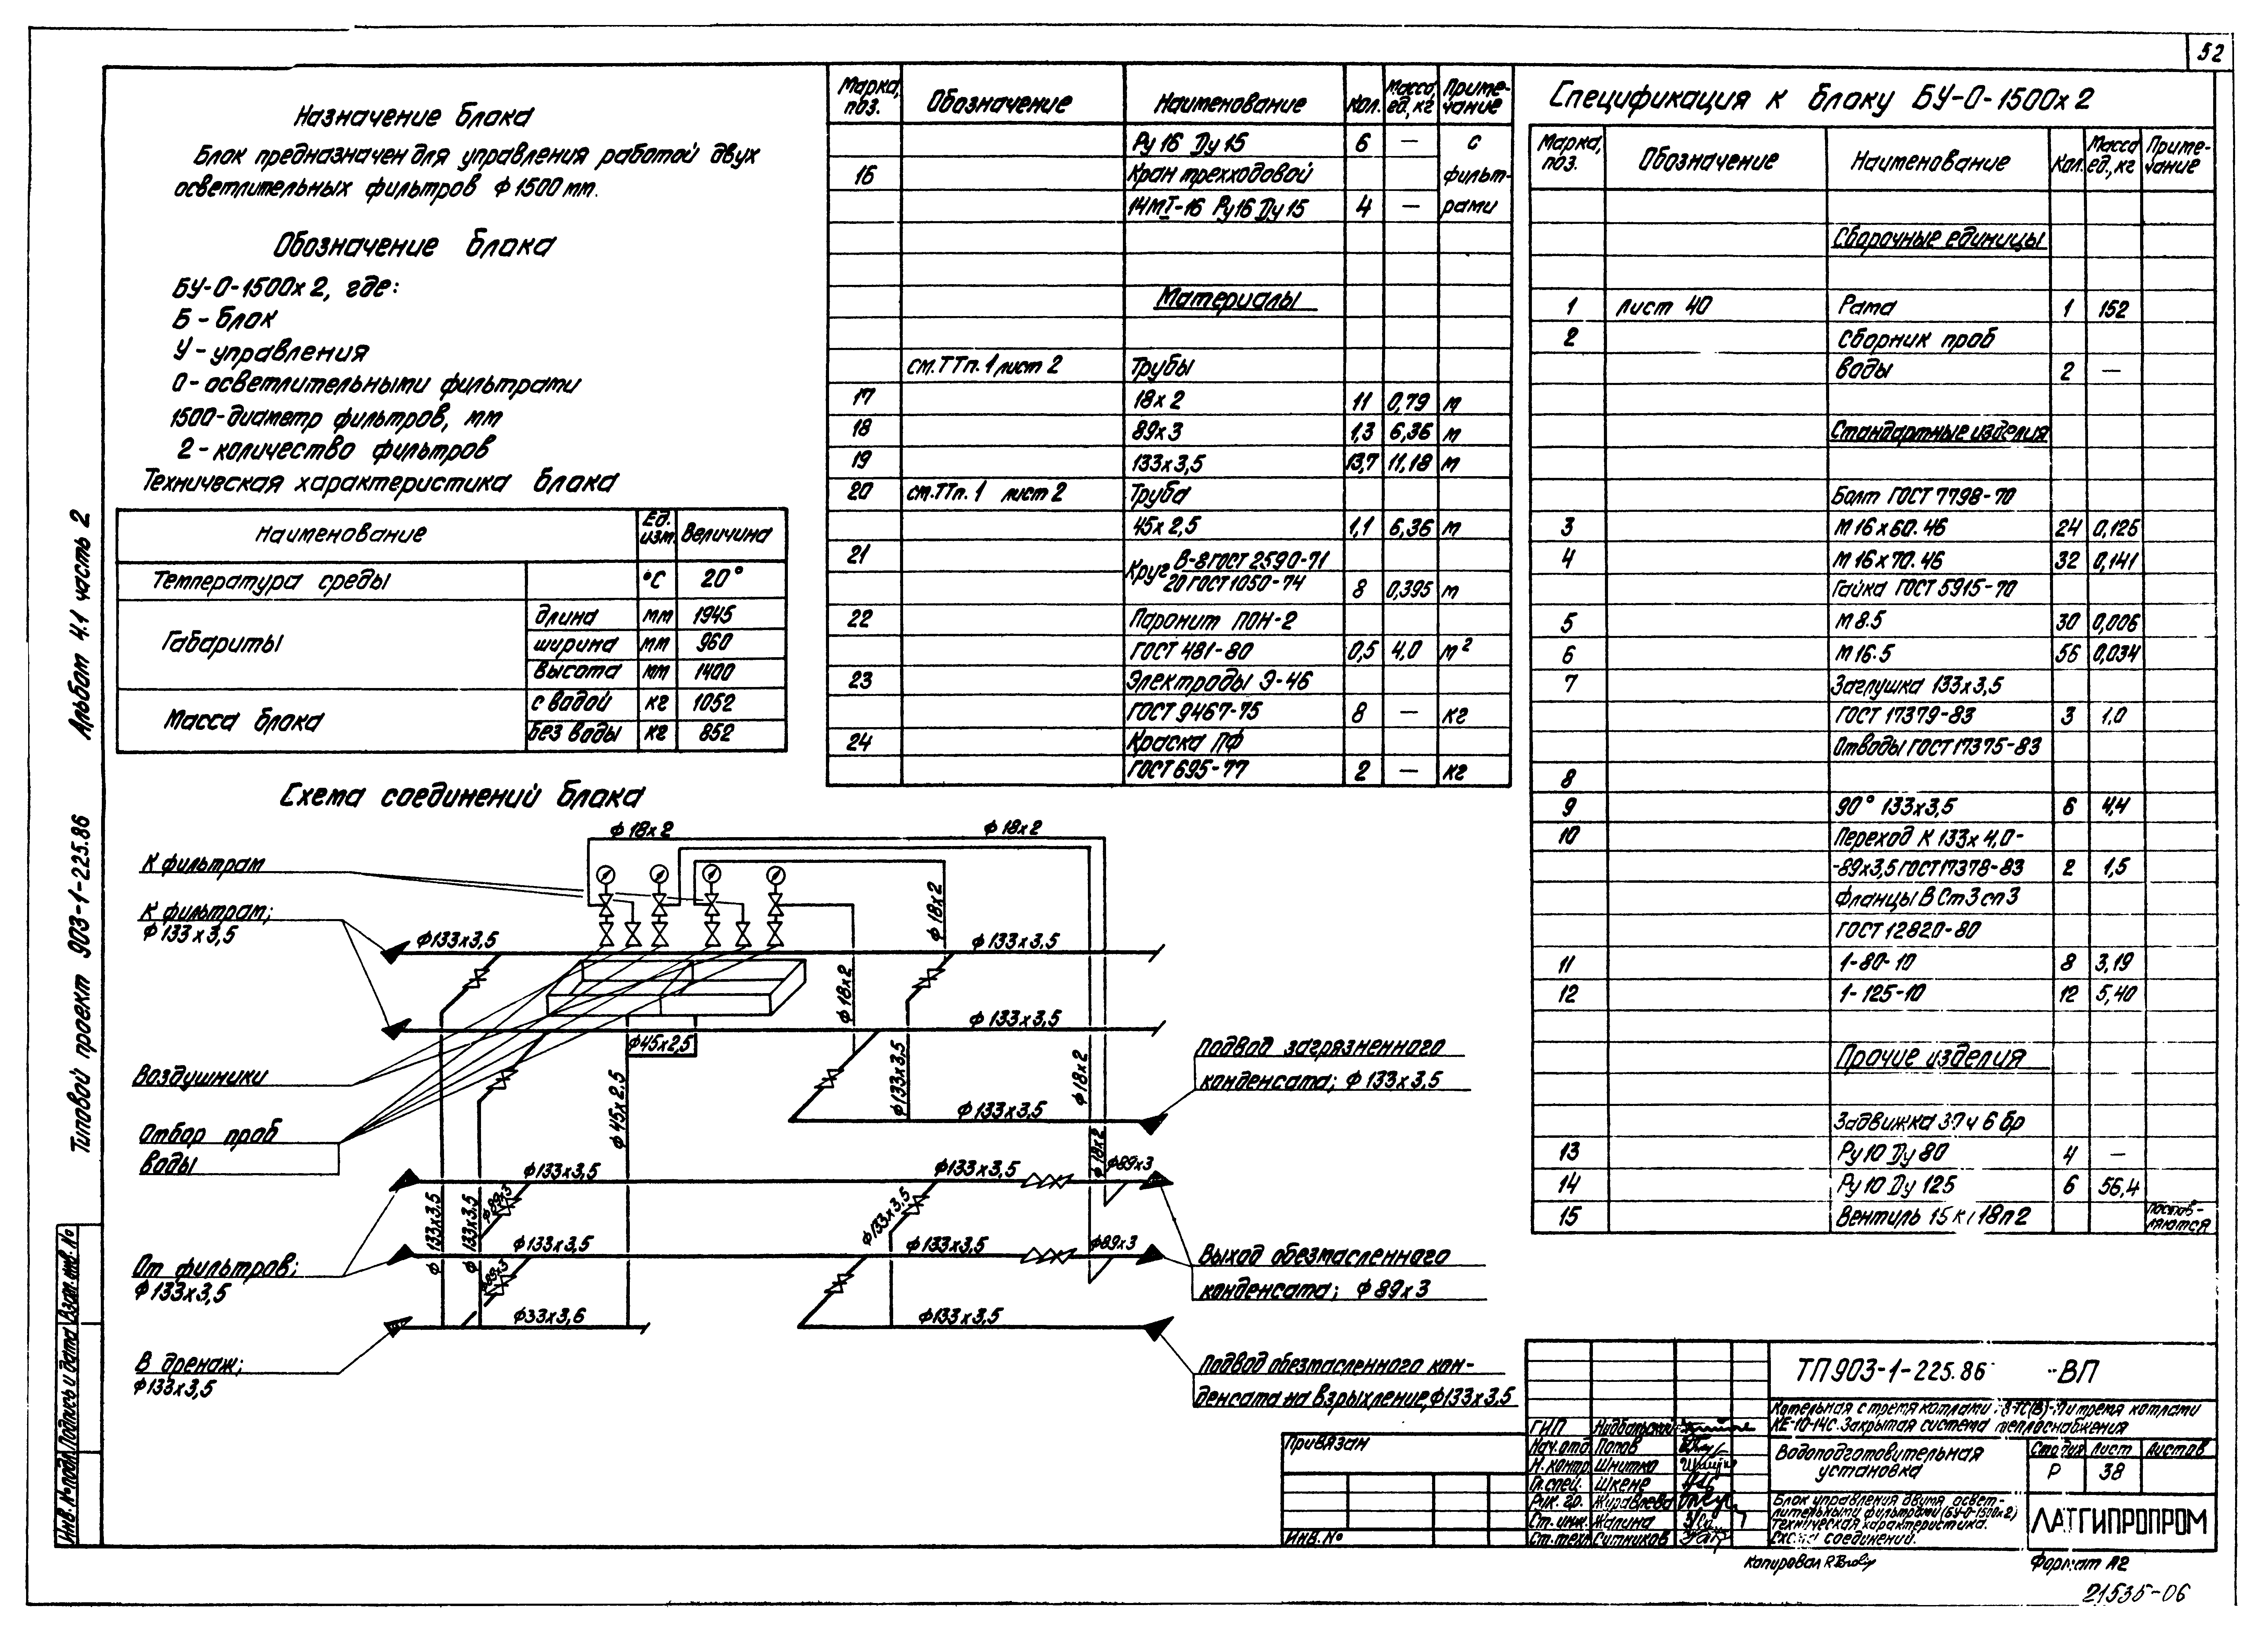 52
Назначение блока
Блок предназначен для управления работой двух
осветлительных фильтров ф 1500 мм.
Обозначение блока
БУ-О-1500х2, где:
Б - блок
У - управления
О - осветлительными фильтрами
1500-диаметр фильтров, мм
2 - количество фильтров
Техническая характеристика блока
Наименование Ед. изм. Величина
Температура среды °С 20°
Габариты длина мм 1945
ширина мм 960
высота мм 1400
Масса блока с водой кг 1052
без воды кг 852
Марка, поз. Обозначение Наименование Кол. Масса ед., кг Приме-чание
Ру 16 Ду 15 6 — с
16 Кран трехходовой фильт-
14МI-16 Ру16 Ду 15 4 — рами
Материалы
см. ТТп. 1 лист 2 Трубы
17 18х2 11 0,79 м
18 89х3 1,3 6,36 м
19 133х3,5 13,7 11,18 м
20 см. ТТп. 1 лист 2 Труба
45х2,5 1,1 6,36 м
21 Круг В-8 ГОСТ 2590-71
20 ГОСТ 1050-74 8 0,395 м
22 Паронит ПОН-2
ГОСТ 481-80 0,5 4,0 м²
23 Электроды Э-46
ГОСТ 9467-75 8 — кг
24 Краска ПФ
ГОСТ 695-77 2 — кг
Спецификация к блоку БУ-О-1500х2
Марка, поз. Обозначение Наименование Кол. Масса ед., кг Приме-чание
Сборочные единицы
1 Лист 40 Рама 1 152
2 Сборник проб
воды 2 —
Стандартные изделия
Болт ГОСТ 7798-70
3 М16х60.46 24 0,125
4 М16х70.46 32 0,141
Гайка ГОСТ 5915-70
5 М8.5 30 0,006
6 М16.5 56 0,034
7 Заглушка 133х3,5
ГОСТ 17379-83 3 1,0
Отводы ГОСТ 17375-83
8
9 90° 133х3,5 6 4,4
10 Переход К 133х4,0-
-89х3,5 ГОСТ 17378-83 2 1,5
Фланцы В Ст3 сп3
ГОСТ 12820-80
11 1-80-10 8 3,19
12 1-125-10 12 5,40
Прочие изделия
Задвижка 30ч 6 бр
13 Ру10 Ду 80 4 —
14 Ру10 Ду 125 6 56,4
15 Вентиль 15 к 18п2 постав-ляются
Схема соединений блока
ф 18х2
ф 18х2
К фильтрам
К фильтрам;
ф 133х3,5
ф133х3,5
ф 18х2
ф133х3,5
ф 18х2
ф 133х3,5
ф45х2,5
Воздушники
Отбор проб
воды
ф 45х2,5
ф133х3,5
ф 18х2
Подвод загрязненного
конденсата; ф 133х3,5
ф133х3,5
ф 18х2
ф133х3,5
ф133х3,5
ф89х3
ф 133х3,5
ф 133х3,5
ф89х3
ф133х3,5
ф133х3,5
ф133х3,5
ф89х3
От фильтров;
ф 133х3,5
ф89х3
Выход обезмасленного
конденсата; ф 89х3
ф33х3,6
ф133х3,5
В дренаж;
ф 133х3,5
Подвод обезмасленного кон-
денсата на взрыхление, ф133х3,5
Типовой проект 903-1-225.86 Альбом 4.1 часть 2
Инв. № подл. Подпись и дата Взам. инв. №
Привязан
Инв. №
ТП 903-1-225.86 -ВП
КЕ-10-14С. Закрытая система теплоснабжения
ГИП
Нач. отд. Попов
Н. контр. Шнитко
Гл. спец. Шкене
Рук. гр. Журавлева
Ст. инж. Жалина
Ст. техн. Ситников
Водоподготовительная
установка
Стадия Лист Листов
Р 38
Блок управления двумя освет-
лительными фильтрами (БУ-О-1500х2)
Техническая характеристика.
Схема соединений.
ЛАТГИПРОПРОМ
Копировал
Формат А2
21535-06